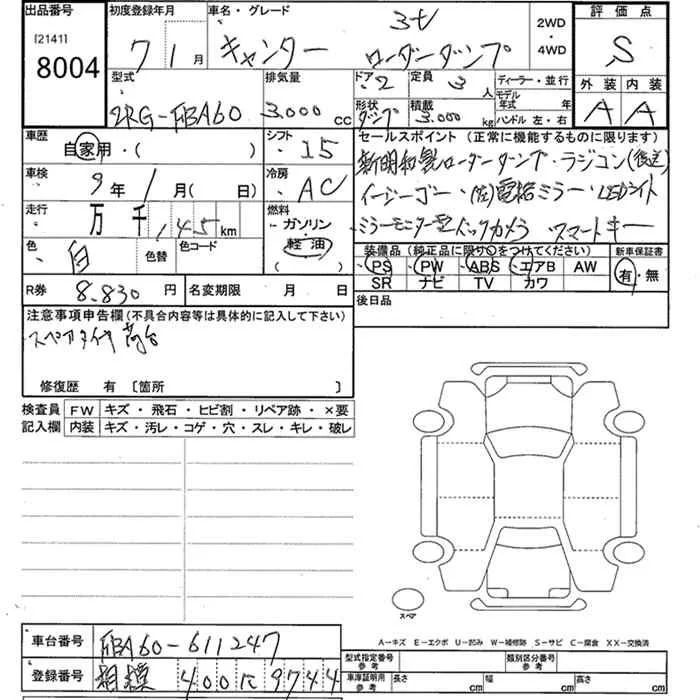 出品番号
[2141]
8004
初度登録年月
7 1月
車名・グレード
3t
キャンター ローダーダンプ
2WD
・
4WD
評価点
S
外装 内装
A A
型式
2RG-FBA60
排気量
3.000 cc
ドア 2
形状
ダンプ
定員
3 人
積載
3.000 kg
ディーラー・並行
モデル
年式 年
ハンドル 左・右
車歴
自家用・( )
シフト
I5
車検
9年 1月( 日)
冷房
AC
走行
万 千 145 km
燃料
ガソリン
軽油
色
白
色替
色コード
R券 8.830 円
名変期限 月 日
セールスポイント (正常に機能するものに限ります)
新明和製ローダーダンプ・ラジコン(後送)
イージーゴー・(左)電格ミラー・LEDライト
ミラーモニター型バックカメラ スマートキー
装備品(純正品に限り○をつけてください)
PS PW ABS エアB AW
SR ナビ TV カワ
新車保証書
有・無
後日品
注意事項申告欄(不具合内容等は具体的に記入して下さい)
スペアタイヤ荷台
修復歴 有 〔箇所 〕
検査員
記入欄
FW キズ・飛石・ヒビ割・リペア跡・×要
内装 キズ・汚レ・コゲ・穴・スレ・キレ・破レ
スペア
A-キズ E-エクボ U-凹み W-補修跡 S-サビ C-腐食 XX-交換済
車台番号 FBA60-611247
登録番号 相模 400に9744
型式指定番号
参考
類別区分番号
参考
車庫証明用
参考
長さ cm 幅 cm 高さ cm